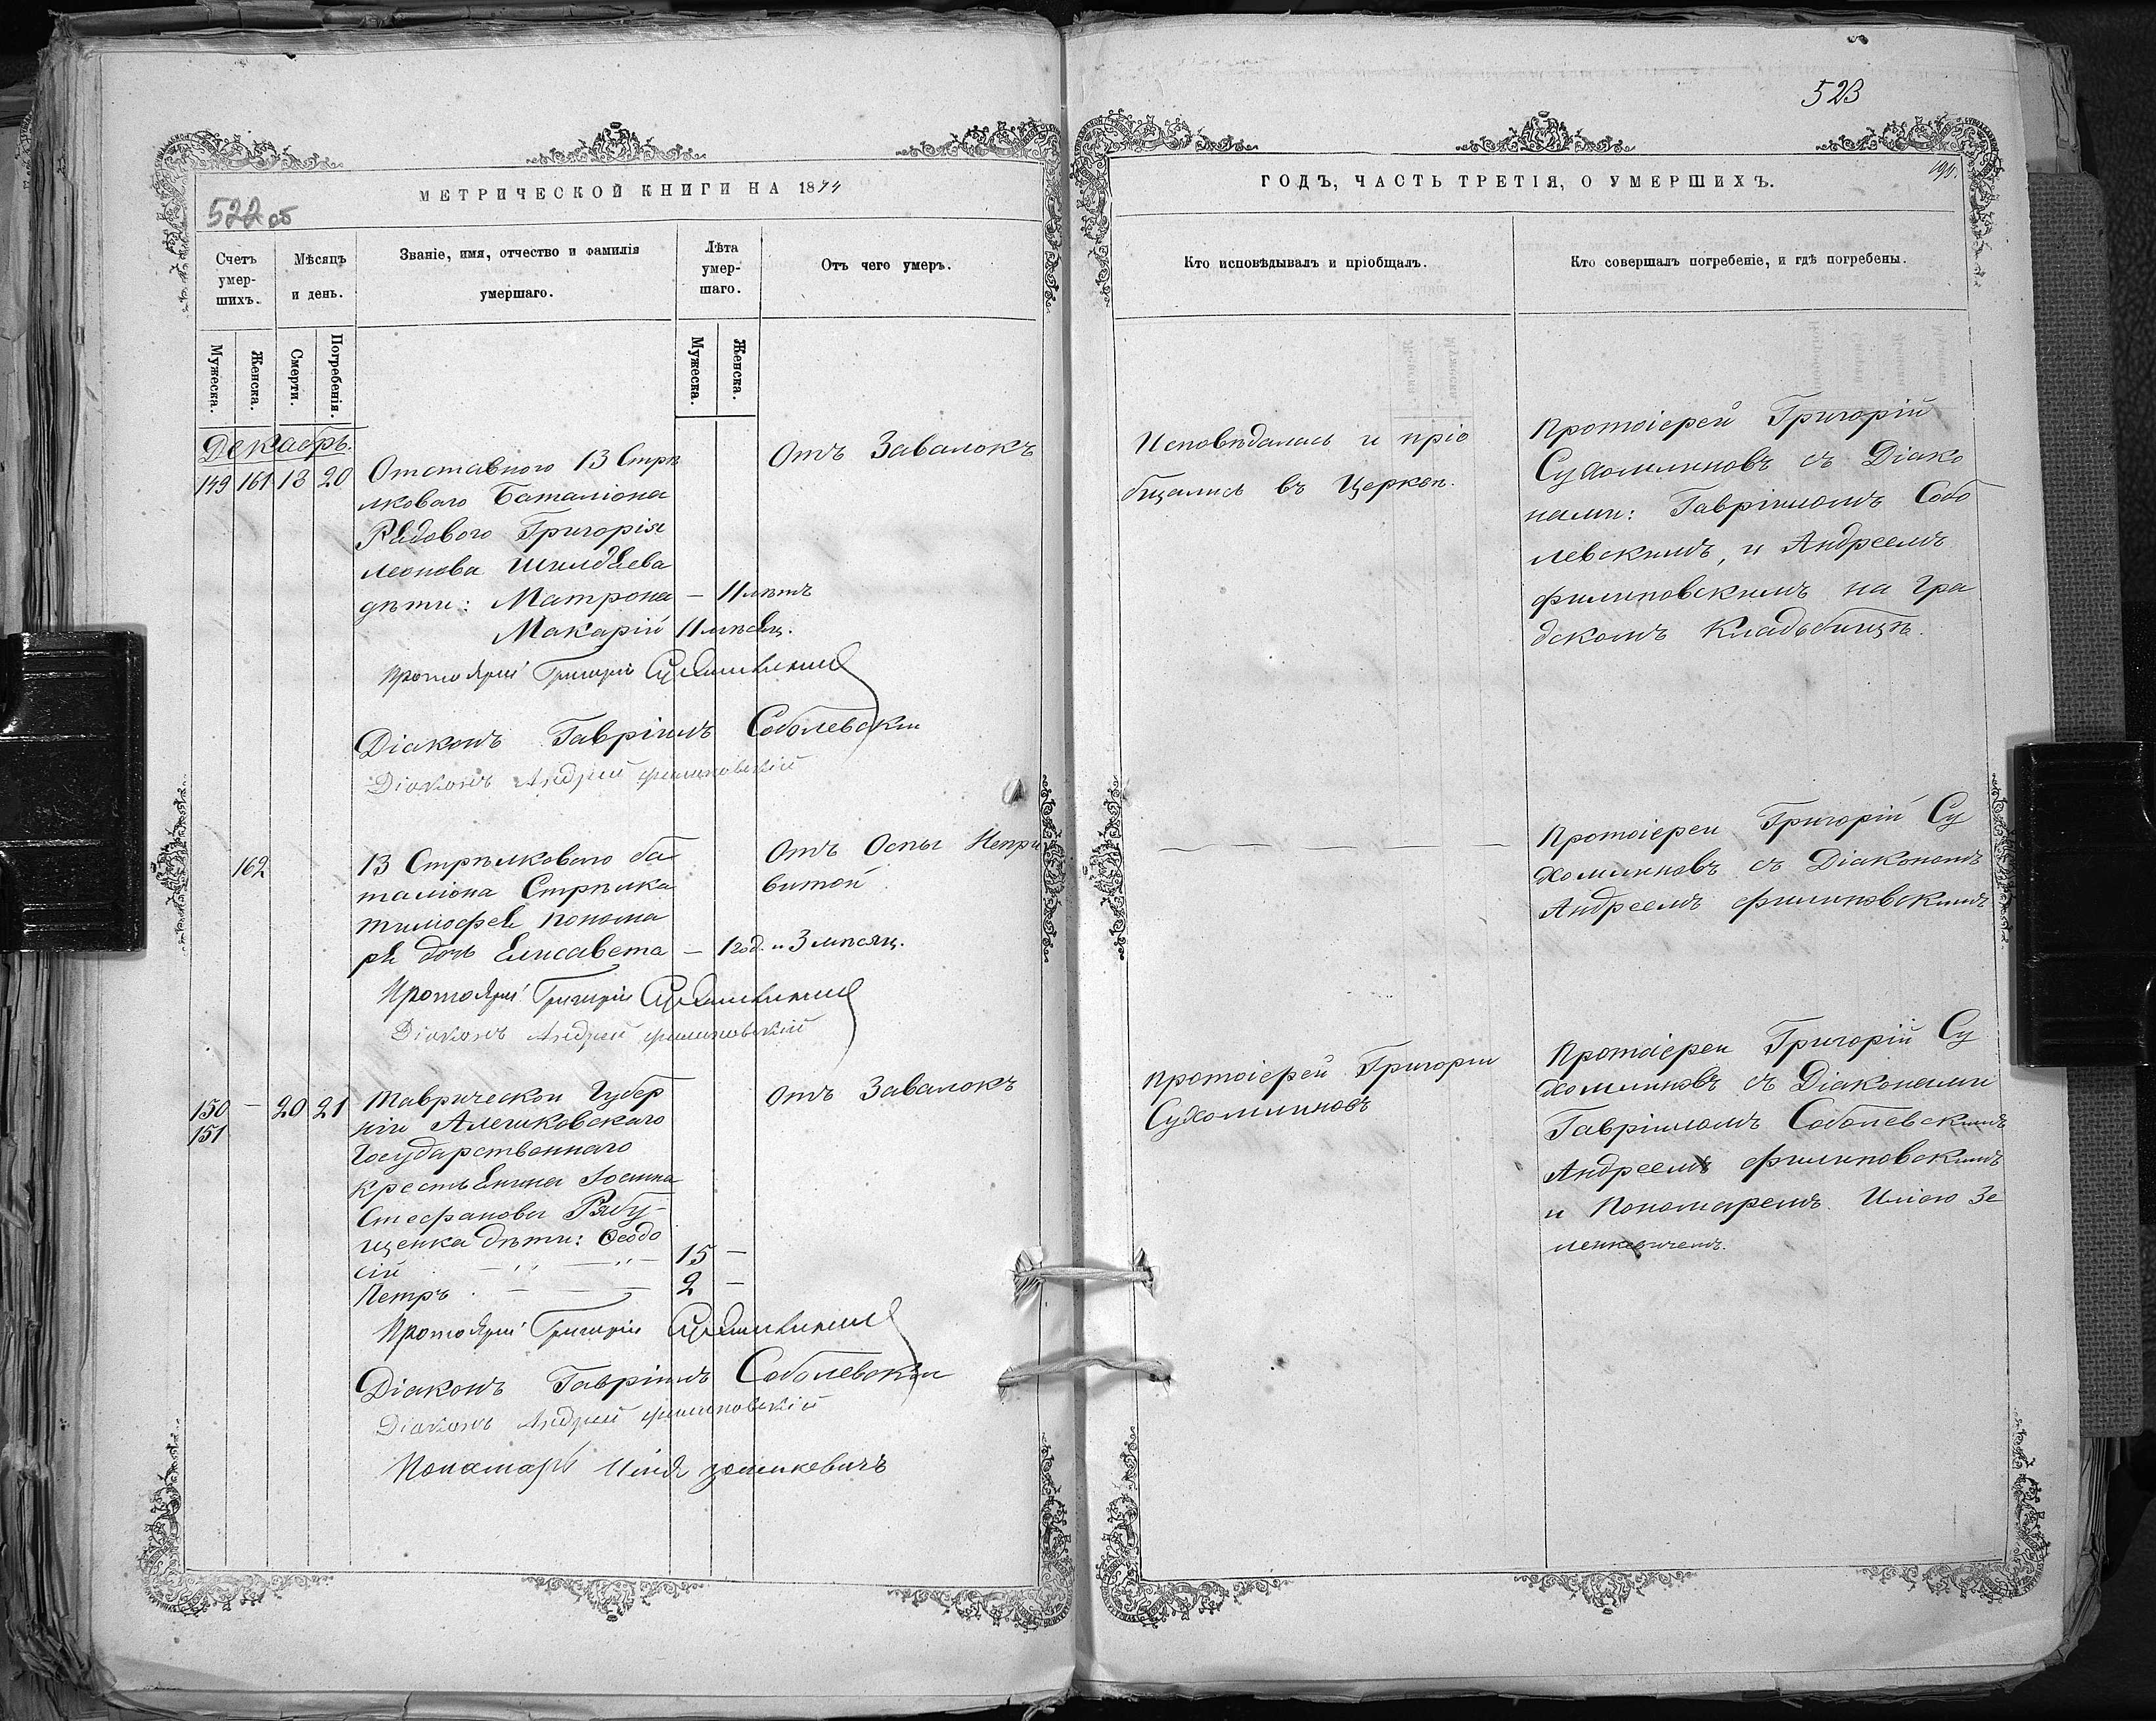 МЕТРИЧЕСКОЙ КНИГИ НА 1874
522 об
Счетъ умер-шихъ.
Мѣсяцъ и день.
Званіе, имя, отчество и фамилія умершаго.
Лѣта умер-шаго.
Отъ чего умеръ.
Мужеска.
Женска.
Смерти.
Погребенія.
Мужеска.
Женска.
Декабрь.
149 161 18 20
Отставного 13 Стрѣ
лковаго Баталіона
Рядового Григорія
Леонова Шилдяева
дѣти: Матрона — 11 лѣтъ
Макарій 11 мѣсяц.
Отъ Завалокъ
Протоіерей Григорій Сухомлиновъ
Діаконъ Гавріилъ Соболевскій
Діаконъ Андрей Филиповскій
162
13 Стрѣлковаго ба
таліона Стрѣлка
Тимофея Понома
ря дочь Елисавета — 1 год. и 3 мѣсяц.
Отъ Оспы Непри
витой
Протоіерей Григорій Сухомлиновъ
Діаконъ Андрей Филиповскій
150 — 20 21
151
Таврической Губер
ніи Алешковскаго
Государственнаго
крестьянина Іоанна
Стефанова Рябу-
щенка дѣти: Ѳеодо
сій — 15 —
Петръ — 2 —
Отъ Завалокъ
Протоіерей Григорій Сухомлиновъ
Діаконъ Гавріилъ Соболевскій
Діаконъ Андрей Филиповскій
Понамарь Илія
523
ГОДЪ, ЧАСТЬ ТРЕТІЯ, О УМЕРШИХЪ.
Кто исповѣдывалъ и пріобщалъ.
Кто совершалъ погребеніе, и гдѣ погребены.
Исповѣдалась и пріо
бщались въ Церкви.
Протоіерей Григорій
Сухомлиновъ съ Діако
нами: Гавріиломъ Собо
левскимъ, и Андреемъ
Филиповскимъ на Гра
дскомъ Кладбищѣ.
Протоіереи Григорій Су
хомлиновъ съ Діакономъ
Андреемъ Филиповскимъ
Протоіерей Григорій
Сухомлиновъ
Протоіереи Григорій Су
хомлиновъ съ Діаконами
Гавріиломъ Соболевскимъ
Андреемъ Филиповскимъ
и Пономаремъ Иліою Зе
ленкевичемъ.